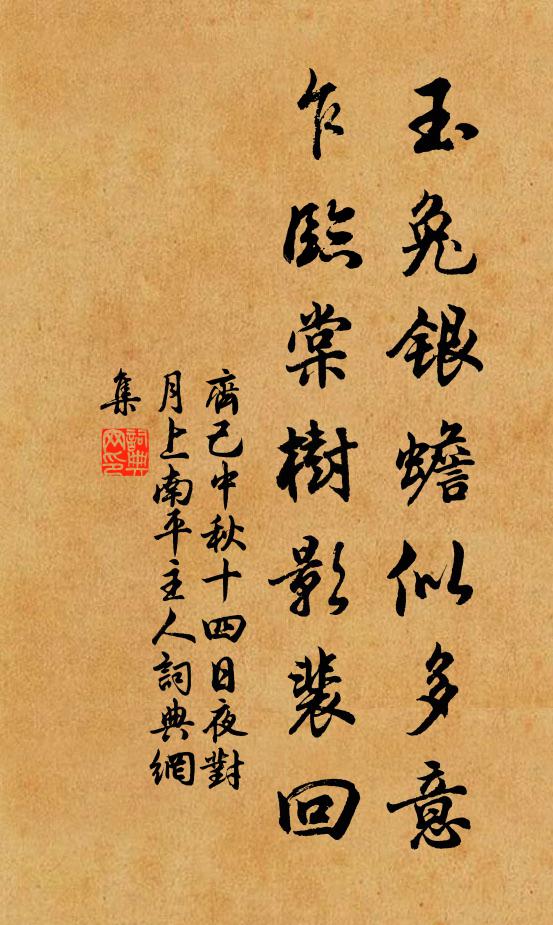 玉兔銀蟾似多意
乍臨棠樹影裴回
齊己中秋十四日夜對
月上南平主人詞典網
集
詞典
网印